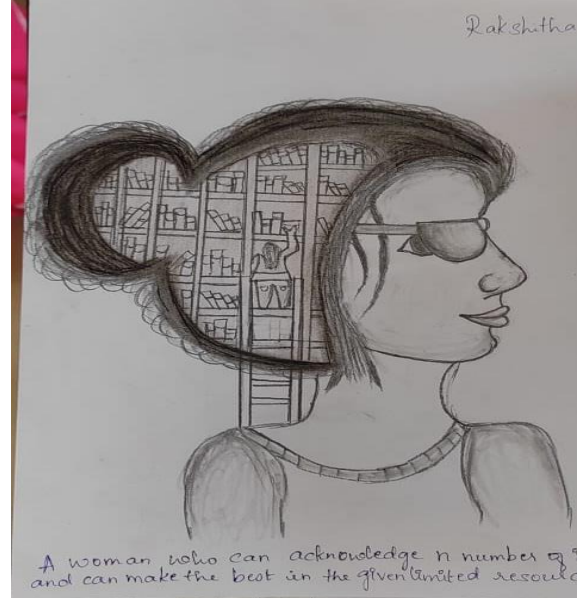 Rakshitha
A woman who can acknowledge n number of
and can make the best in the given limited